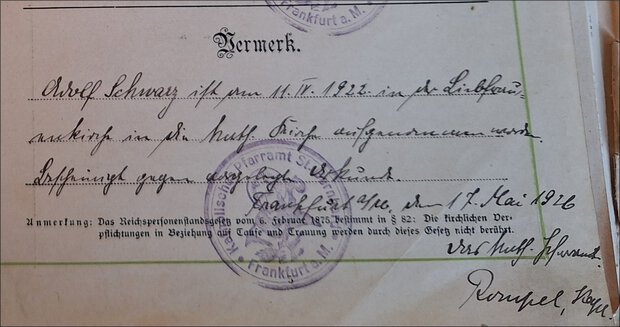 Frankfurt a. M.
Vermerk.
Adolf Schwarz ist am 11. IV. 1922. in der Liebfrau-
enkirche in die kath. Kirche aufgenommen worden.
Bescheinigt gegen vorgelegte Urkunde.
Frankfurt a/M, den 17. Mai 1926
Anmerkung: Das Reichspersonenstandsgesetz vom 6. Februar 1875 bestimmt in § 82: Die kirchlichen Ver-
pflichtungen in Beziehung auf Taufe und Trauung werden durch dieses Gesetz nicht berührt.
Das kath. Pfarramt.
Rompel, Kapl.
Katholisches Pfarramt St.
Frankfurt a. M.